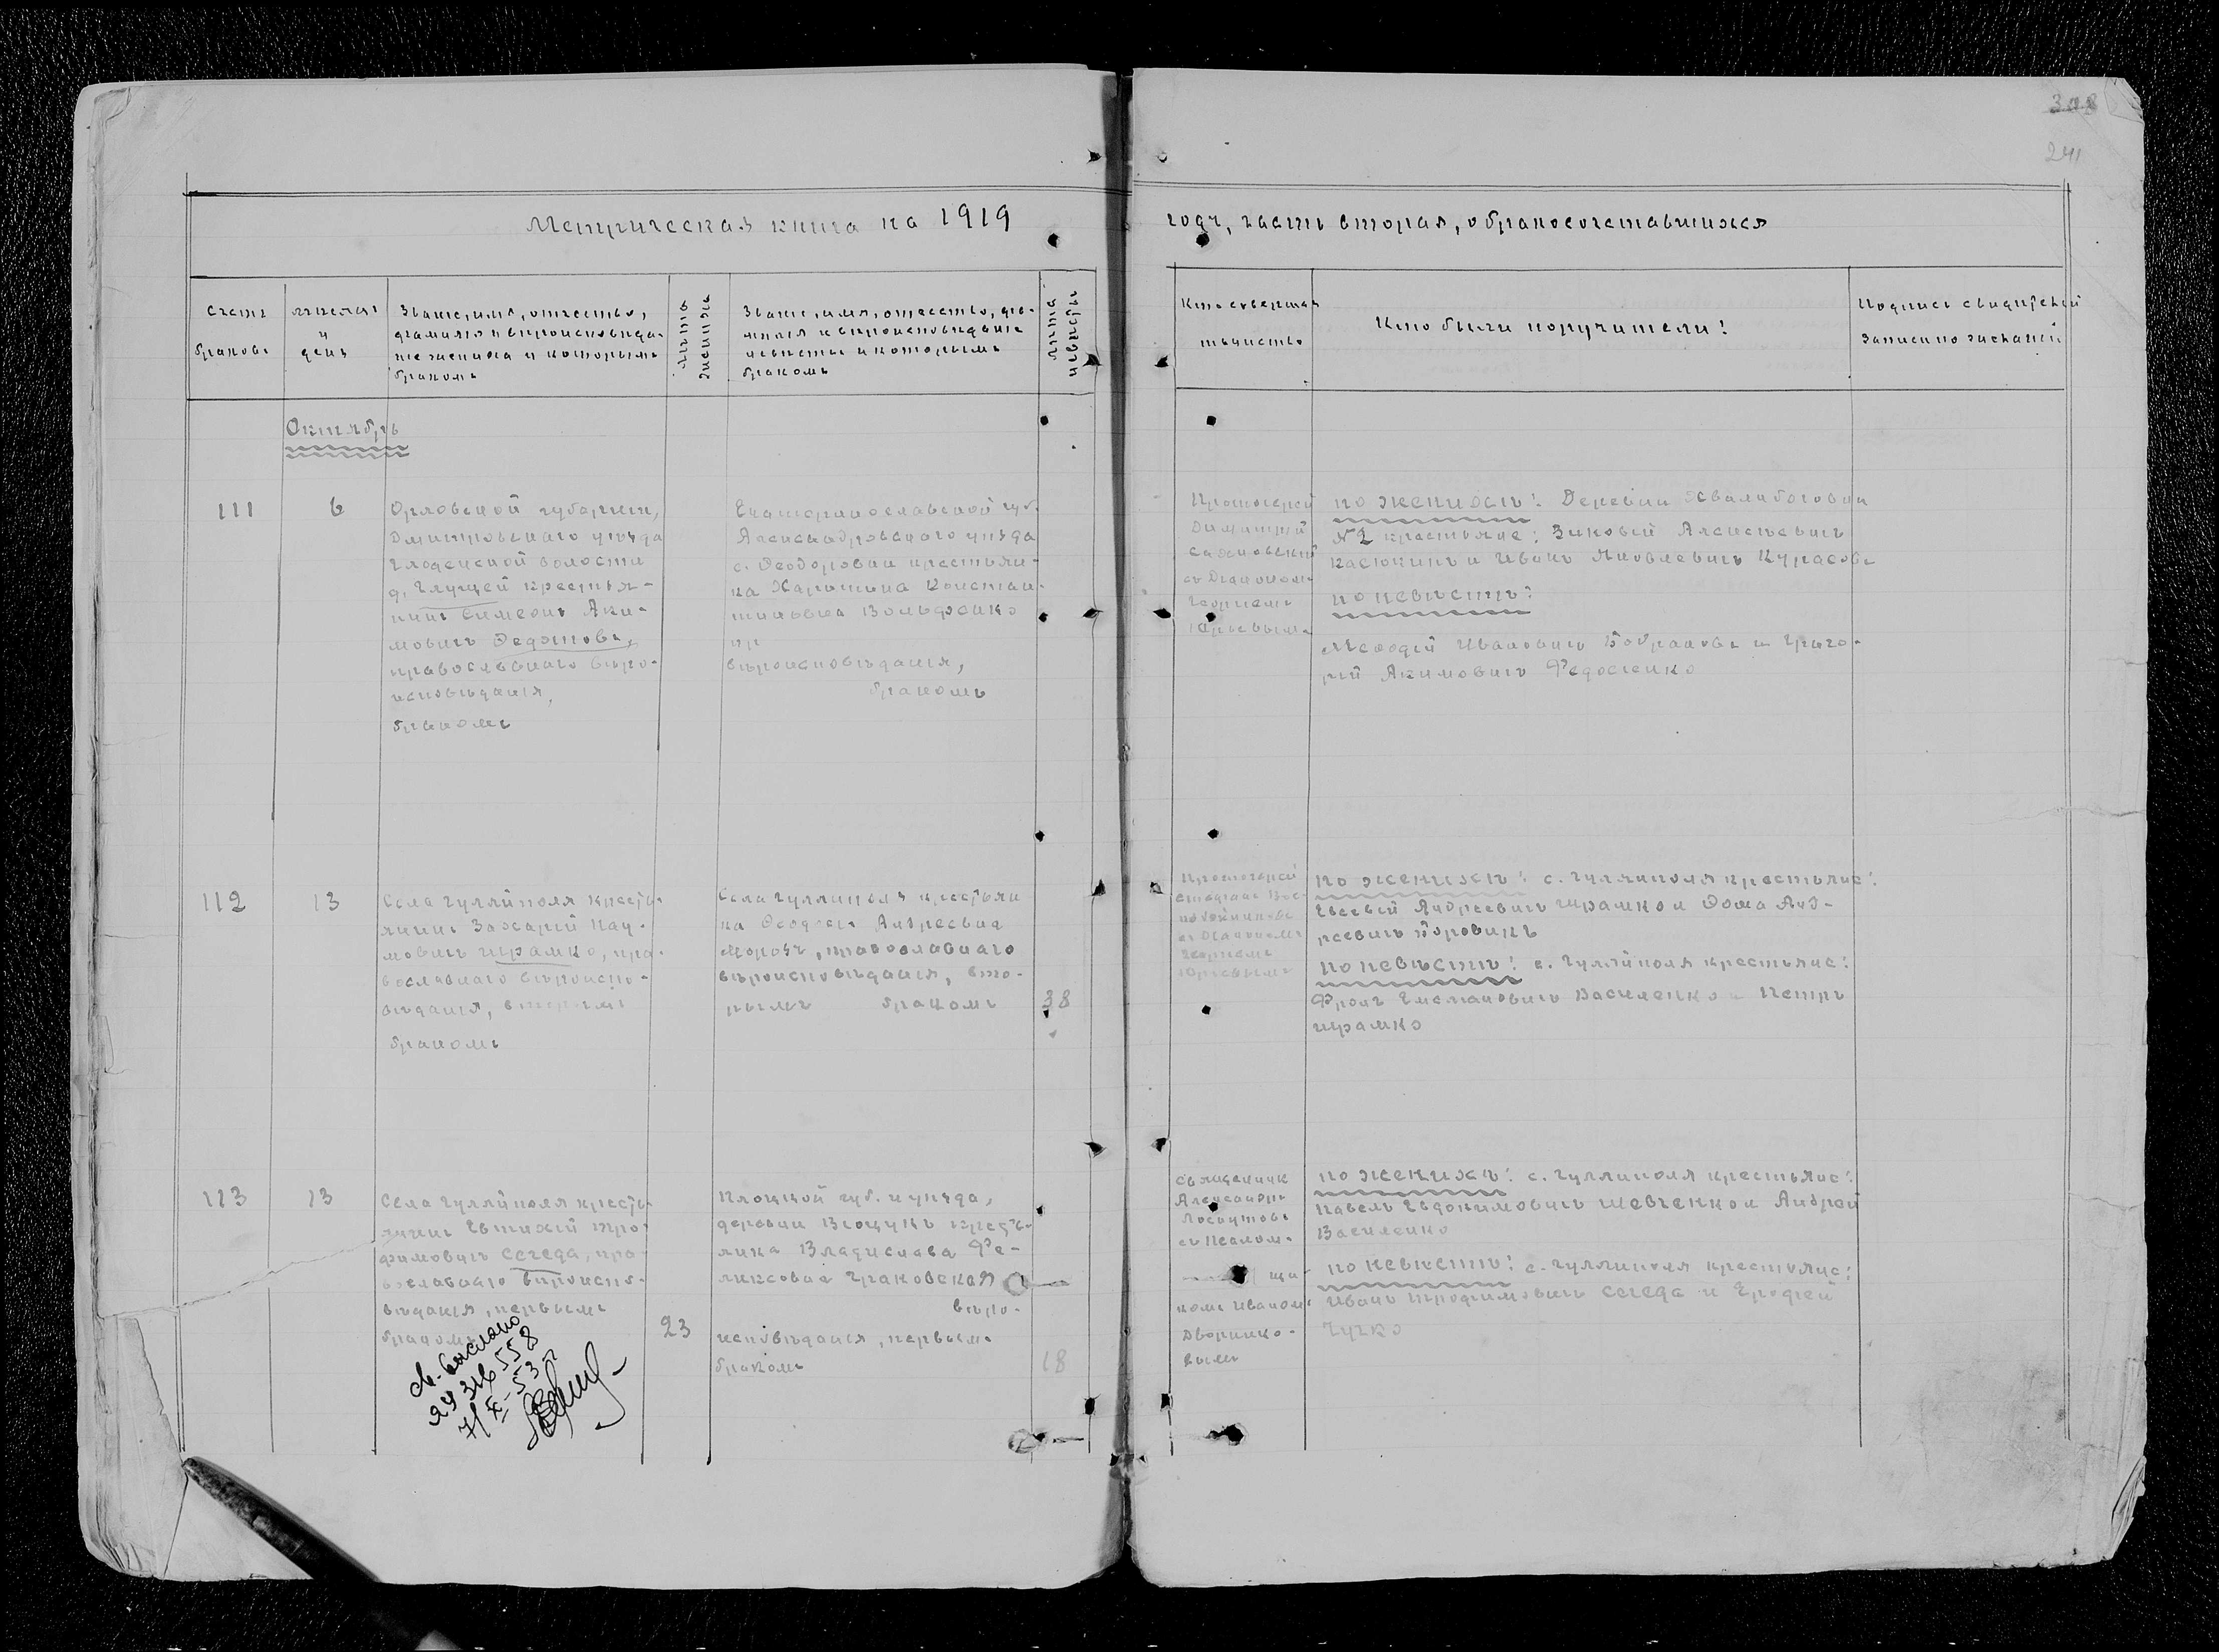 308
241
Метрическая книга на 1919
году, часть вторая, о бракосочетавшихся
Счетъ браковъ
Мѣсяцъ и день
Званіе, имя, отчество,
фамилія и вѣроисповѣда-
ніе жениха и которымъ
бракомъ
Лѣта жениха
Званіе, имя, отчество, фа-
милія и вѣроисповѣданіе
невѣсты и которымъ
бракомъ
Лѣта невѣсты
Кто совершалъ
таинство
Кто были поручители?
Подпись свидѣтелей
записи по желанію
Октябрь
111
6
Орловской губерніи,
Дмитровскаго уѣзда
волости
д. крестья-
нинъ Симеонъ Аки-
мовичъ Федотовъ,
православнаго вѣро-
исповѣданія,
бракомъ
Екатеринославской губ.
Александровскаго уѣзда
с. Феодоровки крестьян-
ка Харитина Констан-
тиновна
пр
вѣроисповѣданія,
бракомъ
Протоіерей
Димитрій
Сахновскій
съ Діакономъ
Георгіемъ
Юрьевымъ
по женихѣ: Деревни
№ 2 крестьяне: Зиновій Алексѣевичъ
Касюкинъ и Иванъ Яковлевичъ Курасовъ
по невѣстѣ:
Меѳодій Ивановичъ и Григо-
рій Акимовичъ Федосенко
112
13
Села Гуляйполя кресть-
янинъ Захарій Нау-
мовичъ Шрамко, пра-
вославнаго вѣроиспо-
вѣданія, вторымъ
бракомъ
Села Гуляйполя крестьян-
ка Ѳеодосія Андреевна
Морозъ, православнаго
вѣроисповѣданія, вто-
рымъ бракомъ
38
Протоіерей
Стефанъ Вос-
съ Діакономъ
Георгіемъ
Юрьевымъ
по женихѣ: с. Гуляйполя крестьяне:
Евсевій Андреевичъ Шрамко и Ѳома Анд-
реевичъ Боровикъ
по невѣстѣ: с. Гуляйполя крестьяне:
Фролъ Емельяновичъ Василенко и Петръ
Шрамко
113
13
Села Гуляйполя кресть-
янинъ Евтихій Тро-
фимовичъ Сегеда, пра-
вославнаго вѣроиспо-
вѣданія, первымъ
бракомъ
23
Плоцкой губ. и уѣзда,
деревни крестья-
нка Владислава Фе-
ликсовна Граковская
вѣро-
исповѣданія, первымъ
бракомъ
18
Священникъ
Александръ
Лоскутовъ
съ Псалом-
щи-
комъ Иваномъ
Дворнико-
вымъ
по женихѣ: с. Гуляйполя крестьяне:
Павелъ Евдокимовичъ Шевченко и Андрей
Василенко
по невѣстѣ: с. Гуляйполя крестьяне:
Иванъ Трофимовичъ Сегеда и Ерофей
Чучко
св. выслано
29 316 558
7/XI-53 г.